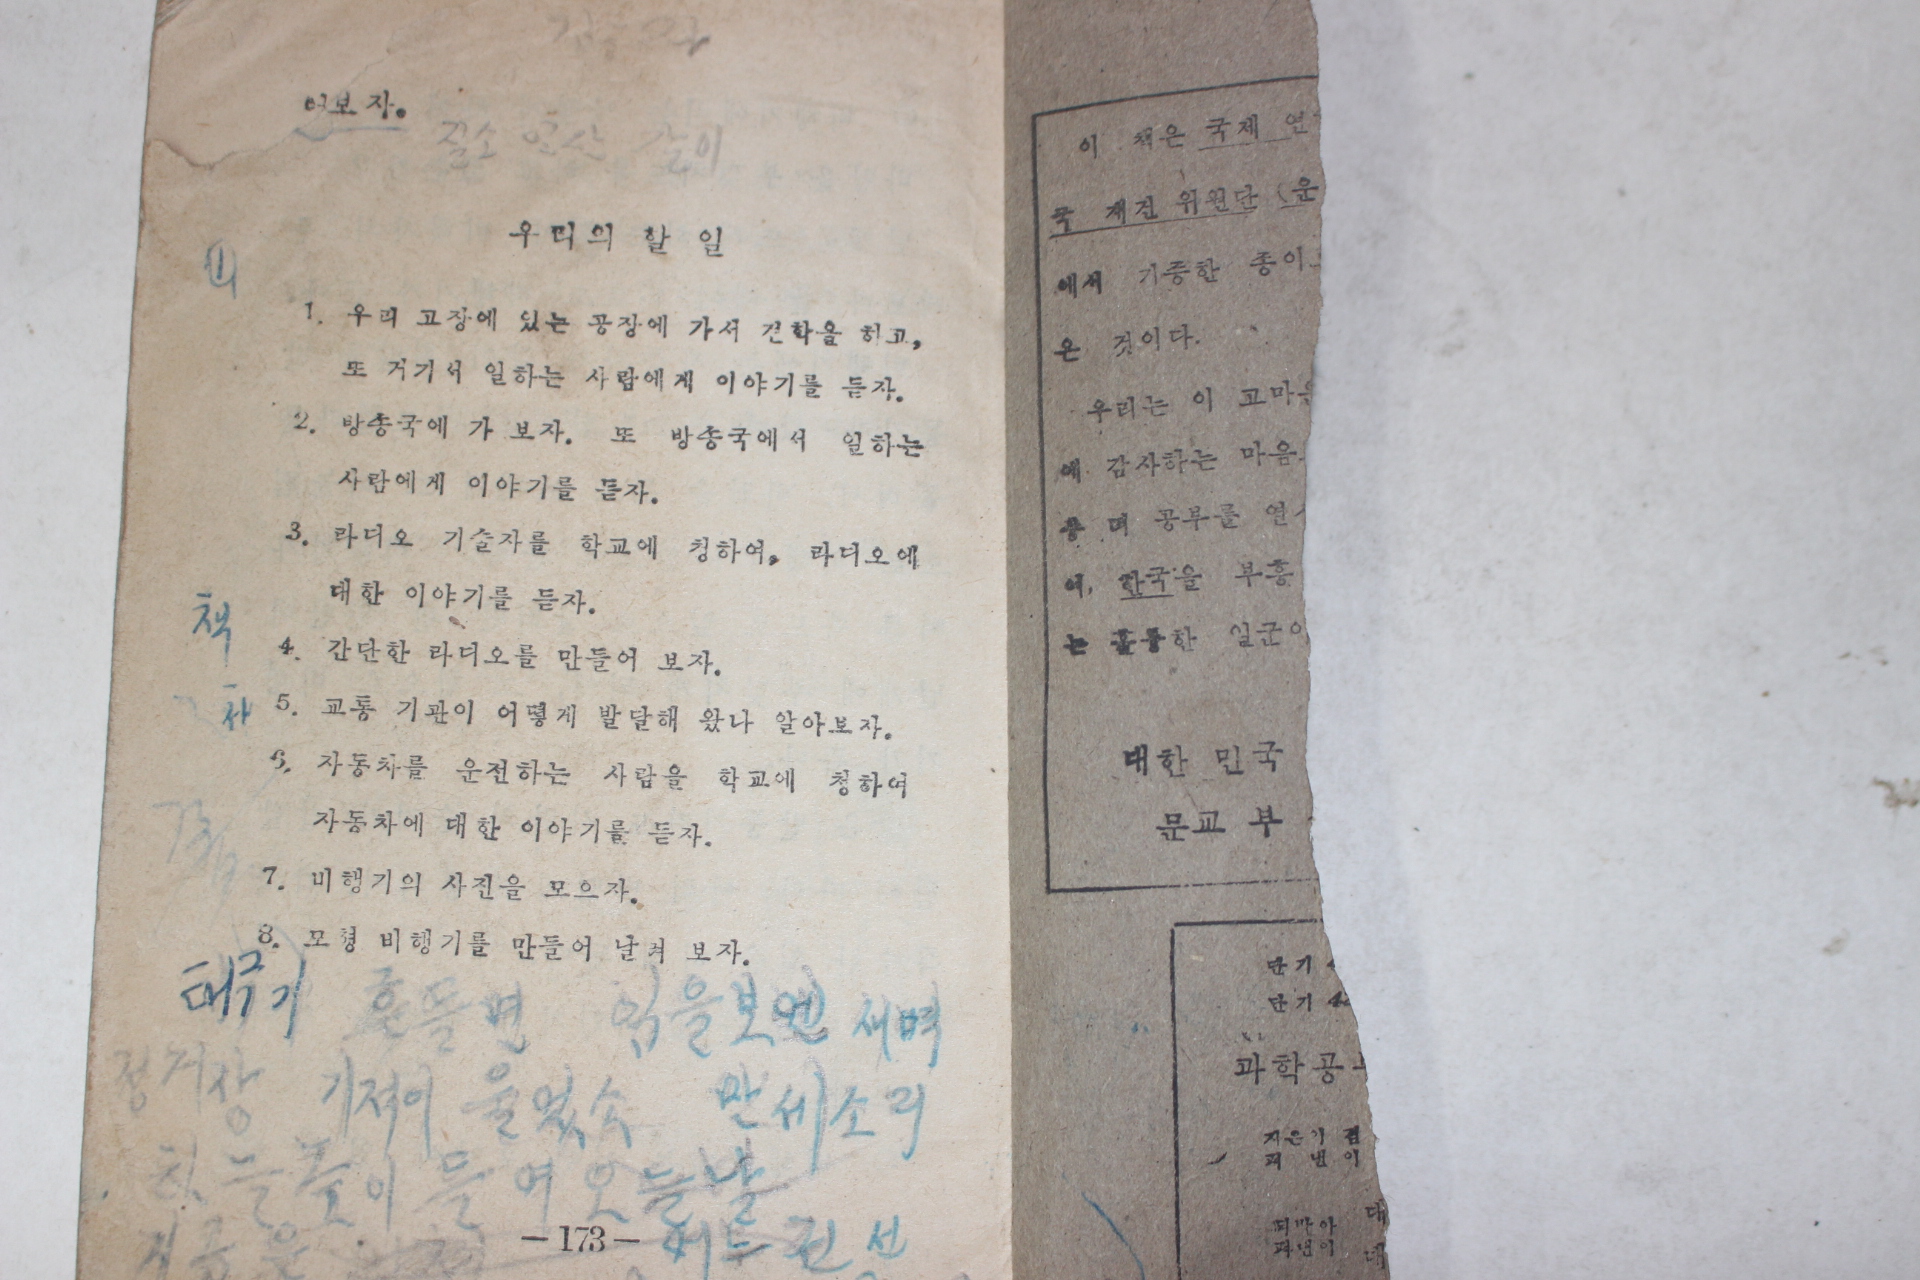 어보자.
우리의 할 일
1. 우리 고장에 있는 공장에 가서 견학을 하고,
또 거기서 일하는 사람에게 이야기를 듣자.
2. 방송국에 가 보자. 또 방송국에서 일하는
사람에게 이야기를 듣자.
3. 라디오 기술자를 학교에 청하여, 라디오에
대한 이야기를 듣자.
4. 간단한 라디오를 만들어 보자.
5. 교통 기관이 어떻게 발달해 왔나 알아보자.
6. 자동차를 운전하는 사람을 학교에 청하여
자동차에 대한 이야기를 듣자.
7. 비행기의 사진을 모으자.
8. 모형 비행기를 만들어 날려 보자.
책
차
태극기 흔들면 새벽
정거장 기적이 울었소 만세소리
— 173 —
이 책은 국제 연
국 재건 위원단 (운
에서 기증한 종이
온 것이다.
우리는 이 고마
에 감사하는 마음
며 공부를
한국을 부흥
는 훌륭한 일군이
대한 민국
문교부
단기
단기 4
과학공
지은이 겸
펴낸이
펴낸이